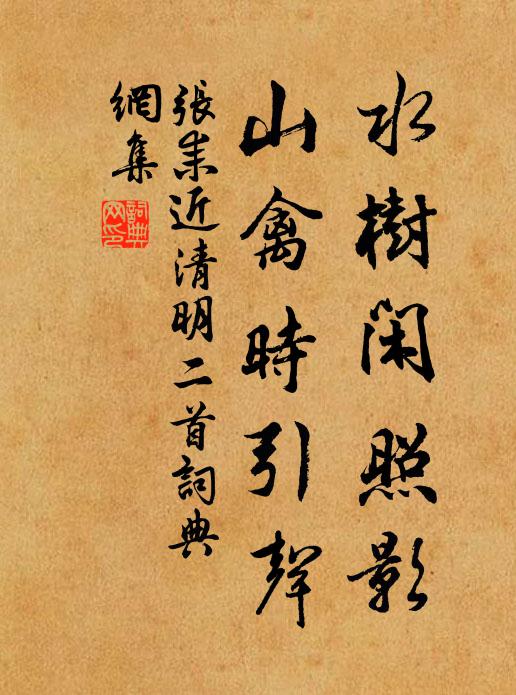 水樹閑照影
山禽時引聲
張耒近清明二首詞典
網集
詞典
网印